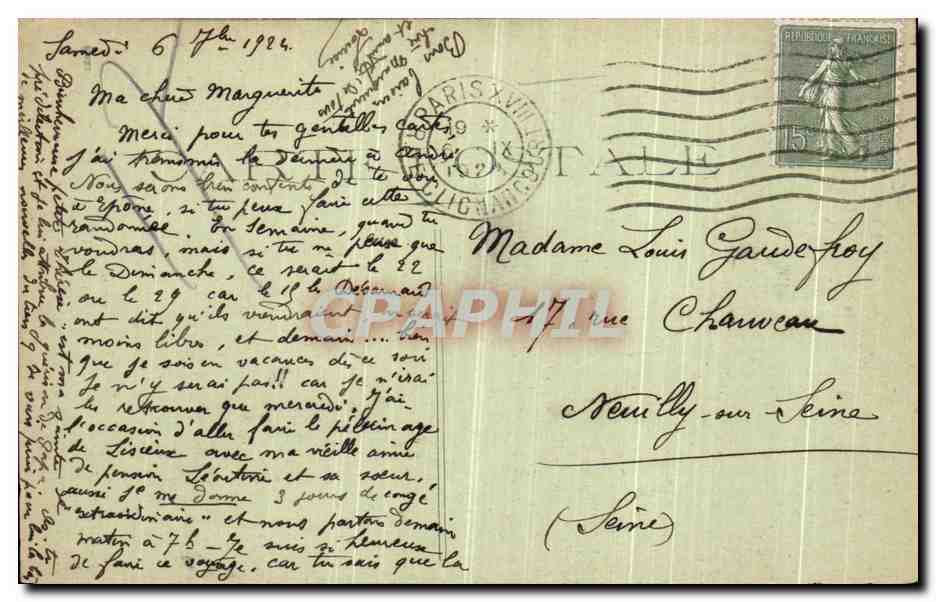 Samedi 6 7bre 1924
Ma chère Marguerite
Merci pour tes gentilles cartes,
j'ai transmis la dernière à André
Nous serons bien contents de te voir
à Epone, si tu peux faire cette
randonnée. En semaine, quand tu
voudras, mais si tu ne peux que
le Dimanche, ce serait le 22
ou le 29 car le 15 les
ont dit qu'ils viendraient
moins libres, et demain .... bien
que je sois en vacances dès ce soir
Je n'y serai pas!! car je n'irai
les retrouver que mercredi. J'ai
l'occasion d'aller faire le pèlerinage
de Lisieux avec ma vieille amie
de pension Léontine et sa sœur,
aussi je me donne 3 jours de congé
"extraordinaire" et nous partons demain
matin à 7h - Je suis si heureuse
de faire ce voyage, car tu sais que la
Bienheureuse petite Thérèse est ma Sainte de
prédilection et je lui attribue la guérison de papa. As-tu
de meilleures nouvelles
Bons baisers
Louise
CARTE POSTALE
PARIS XVIII
19 *
6 IX
1924
R. CLIGNANCOURT
REPUBLIQUE FRANÇAISE
15c
Madame Louis Gaudefroy
17 rue Chauveau
Neuilly-sur-Seine
(Seine)
CPAPHIL